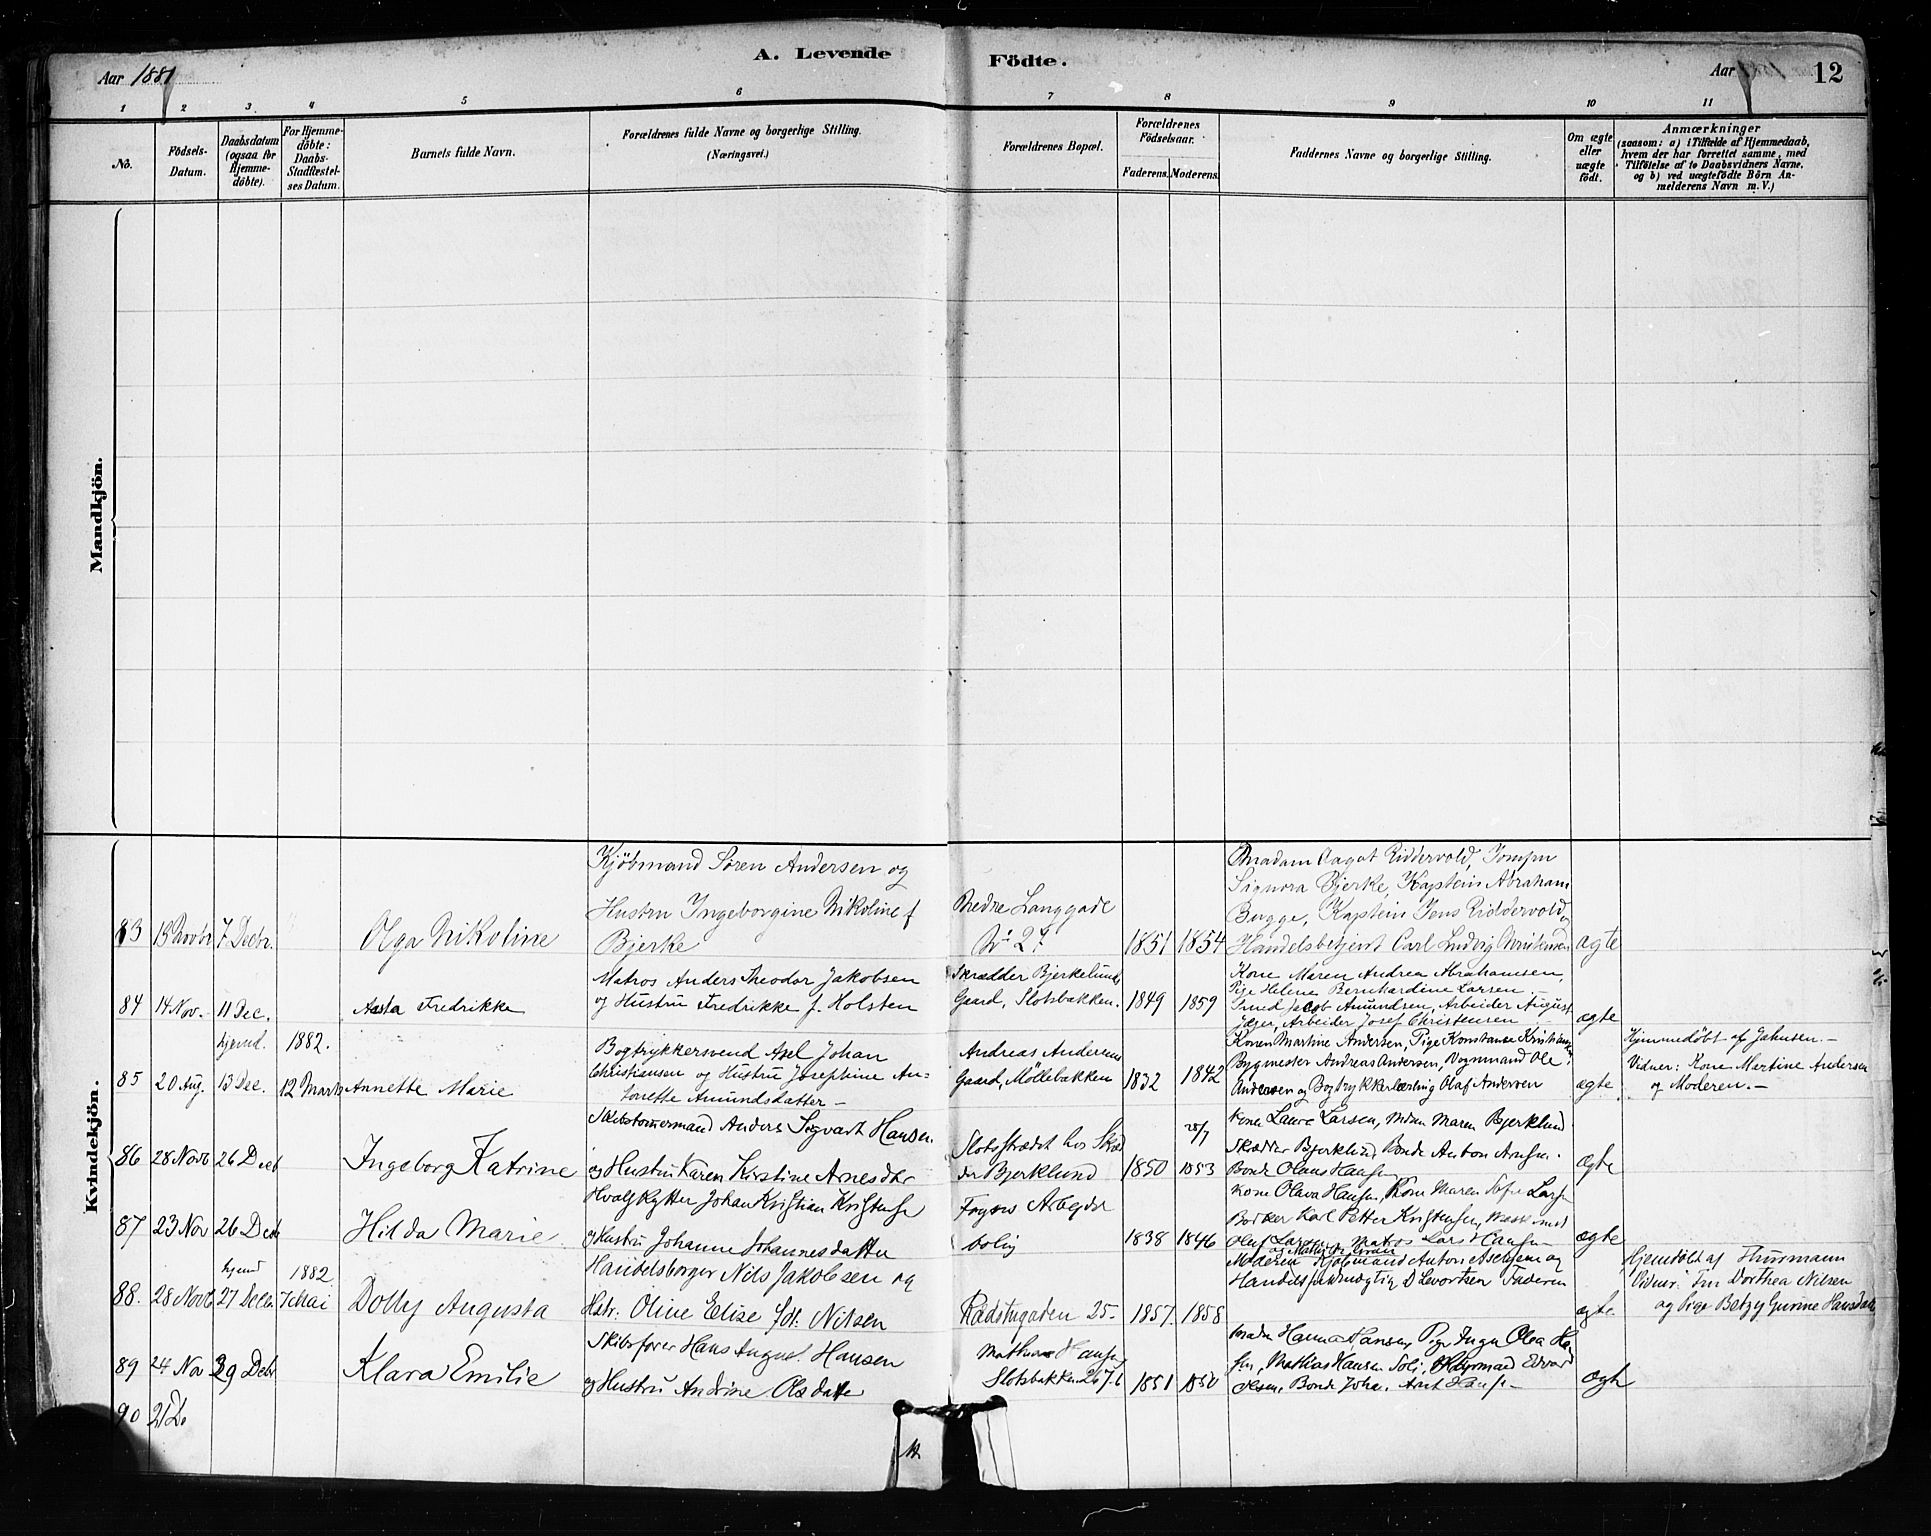 A. Levende Födte.
Aar 1881
Aar
12
1 2 3 4 5 6 7 8 9 10 11
Nö.
Födsels-Datum.
Daabsdatum (ogsaa for Hjemme-döbte).
For Hjemme-döbte: Daabs-Stadfæstel-ses Datum.
Barnets fulde Navn.
Forældrenes fulde Navne og borgerlige Stilling.
(Næringsvei.)
Forældrenes Bopæl.
Forældrenes Födselsaar.
Faderens. Moderens.
Faddernes Navne og borgerlige Stilling.
Om ægte eller uægte födt.
Anmærkninger
(saasom: a) i Tilfælde af Hjemmedaab,
hvem der har forrettet samme, med
Tilföielse af to Daabsvidners Navne,
og b) ved uægtefödte Börn An-
melderens Navn m. V.)
Mandkjön.
Kvindekjön.
83 13 Novbr 7 Decbr.
Olga Nikoline
Kjöbmand Sören Andersen og
Hustru Ingeborgine Nikoline f
Bjerke
Nedre Langgade
No 27
1851 1854
Madam Riddervold, Jomfru
Signora Bjerke, Kaptein Abraham
Bugge, Kaptein Jens Riddervold,
Handelsbetjent Carl Ludvig Christensen
ægte
84 14 Nov. 11 Dec.
Aasta Fredrikke
Matros Anders Theodor Jakobsen
og Hustru Fredrikke f. Holsten
Skrædder Bjerkelunds
Gaard, Slotsbakken.
1849 1859
Kone Maren Andrea Abrahamsen,
Pige Helene Bernhardine Larsen.
Smed Jacob Amundsen, Arbeider August
Arbeider Josef Christensen
ægte
85 20 Aug. hjemd. 13 Dec. 1882. 12 Marts
Annette Marie
Bogtrykkersvend Axel Johan
Christiansen og Hustru Josephine An-
tonette Amundsdatter
Andreas Andersens
Gaard, Möllebakken
1832 1842
Konen Martine Andersen, Pige Konstanse
Bygmester Andreas Andersen, Vognmand Ole
Andersen og Bogtrykkerlærling Olaf Andersen
ægte
Hjemmedöbt af Jahnsen.
Vidner: Kone Martine Andersen
og Moderen.
86 28 Novb 26 Decb
Ingeborg Katrine
Skibstömmermand Anders Sigvart Hansen
og Hustru Karen Kirstine Arnesdtr
Slotsstrædet hos Skræd
der Bjerklund
1850 1853
Kone Laura Larsen, Mdm Maren Bjerklund
Skrædder Bjerklund Bonde Anton
Bonde Olaus Hansen
ægte
87 23 Nov 26 Decb
Hilda Marie
Hvalskytter Johan Kristian Kristensen
og Hustru Johanne Johannesdatter
Foyns Arbejder
bolig
1838 1846
Kone Olava Hansen, Kone Maren Sofie Larsen
Karl Petter Kristensen,
Oluf Larsen, Matros Lars Hansen
ægte
88. 28 Novb hjemd 27 Decbr 1882. 7 Mai
Dolly Augusta
Handelsborger Nils Jakobsen og
Hstr: Oline Elise fdt. Nilsen
Raadstugaden 25.
1857. 1858
Moderen Kjöbmand Anton og
Handelsfuldmægtig D Levortsen Faderen
ægte
Hjemdöbt af Thurmann
Vidner: Fru Dorthea Nilsen
og Pige Betzy Gurine
89 24 Nov 29 Decbr
Klara Emilie
Skibsförer Hans August Hansen
og Hustru Andrine Olsdatter
Mathias Hansen
Slotsbakken 267 b
1851 1850
Hanna Hansen, Pige Inga Olea
Mathias Hansen Edvard
Olsen, Bonde
ægte
90 21 Do
12